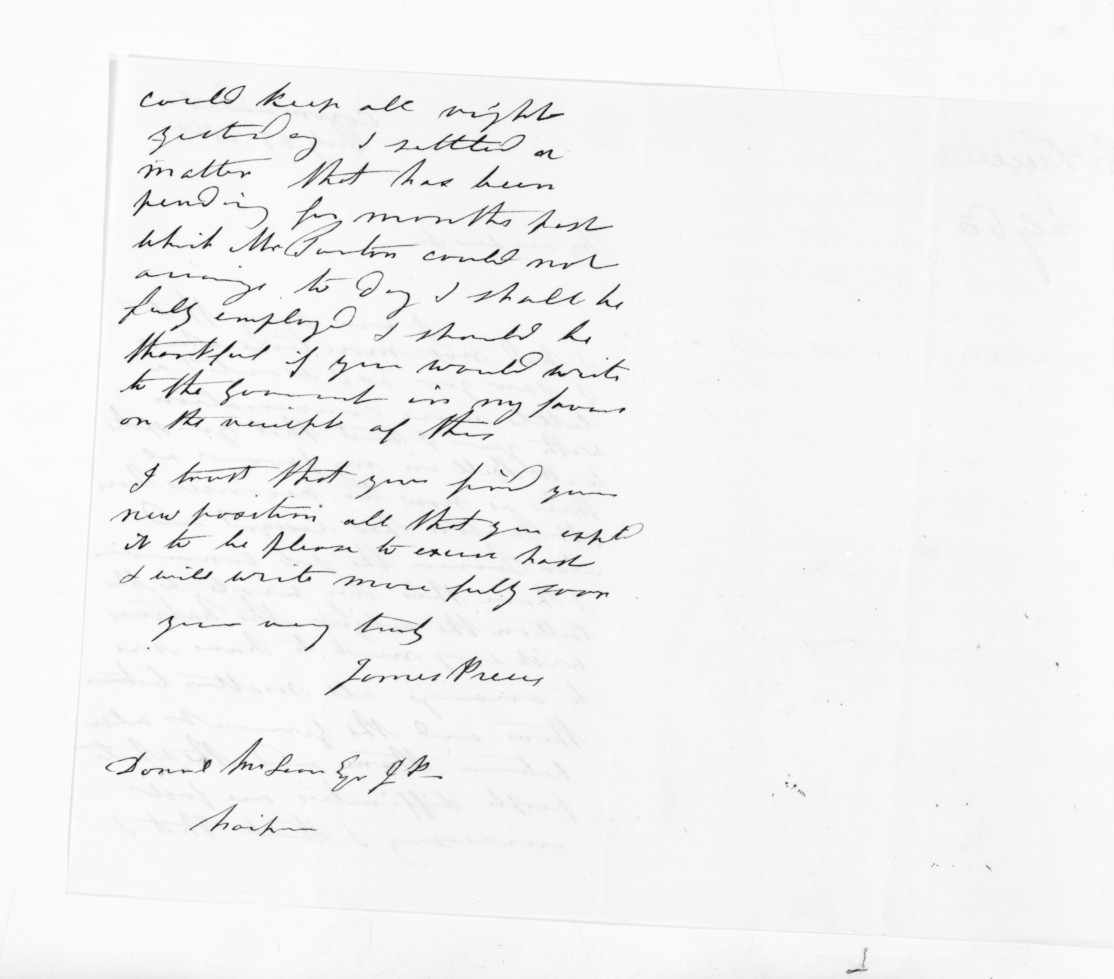 could keep all right
yesterday I settled a
matter that has been
pending for months past
which Mr Purton could not
arrange to day I shall be
fully employed I should be
thankful if you would write
to the Goverment in my favour
on the receipt of this
I trust that you find your
new position all that you expltd
it to be please to excuse hast
I will write more fully soon
yours very truly
James Preece
Donald McLean Esqr JP